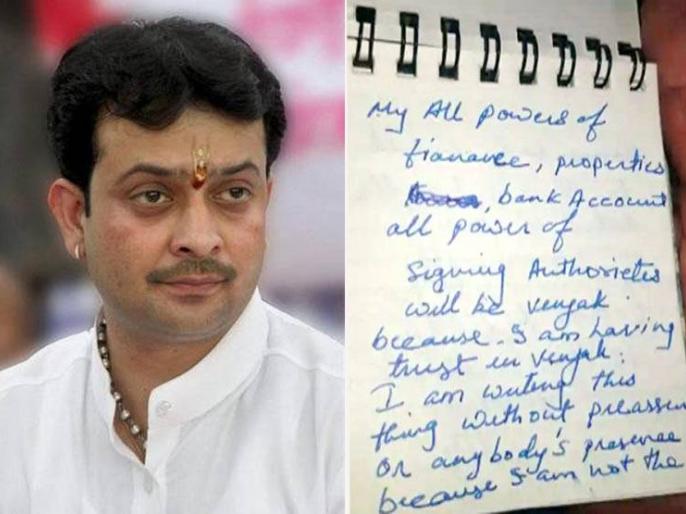 My All powers of
fianance, properties
, bank Account
all power of
Signing Authorietes
will be vinyak
because. I am having
trust in vinyak.
I am writing this
thing without preassur
or anybody's presence
because I am not the